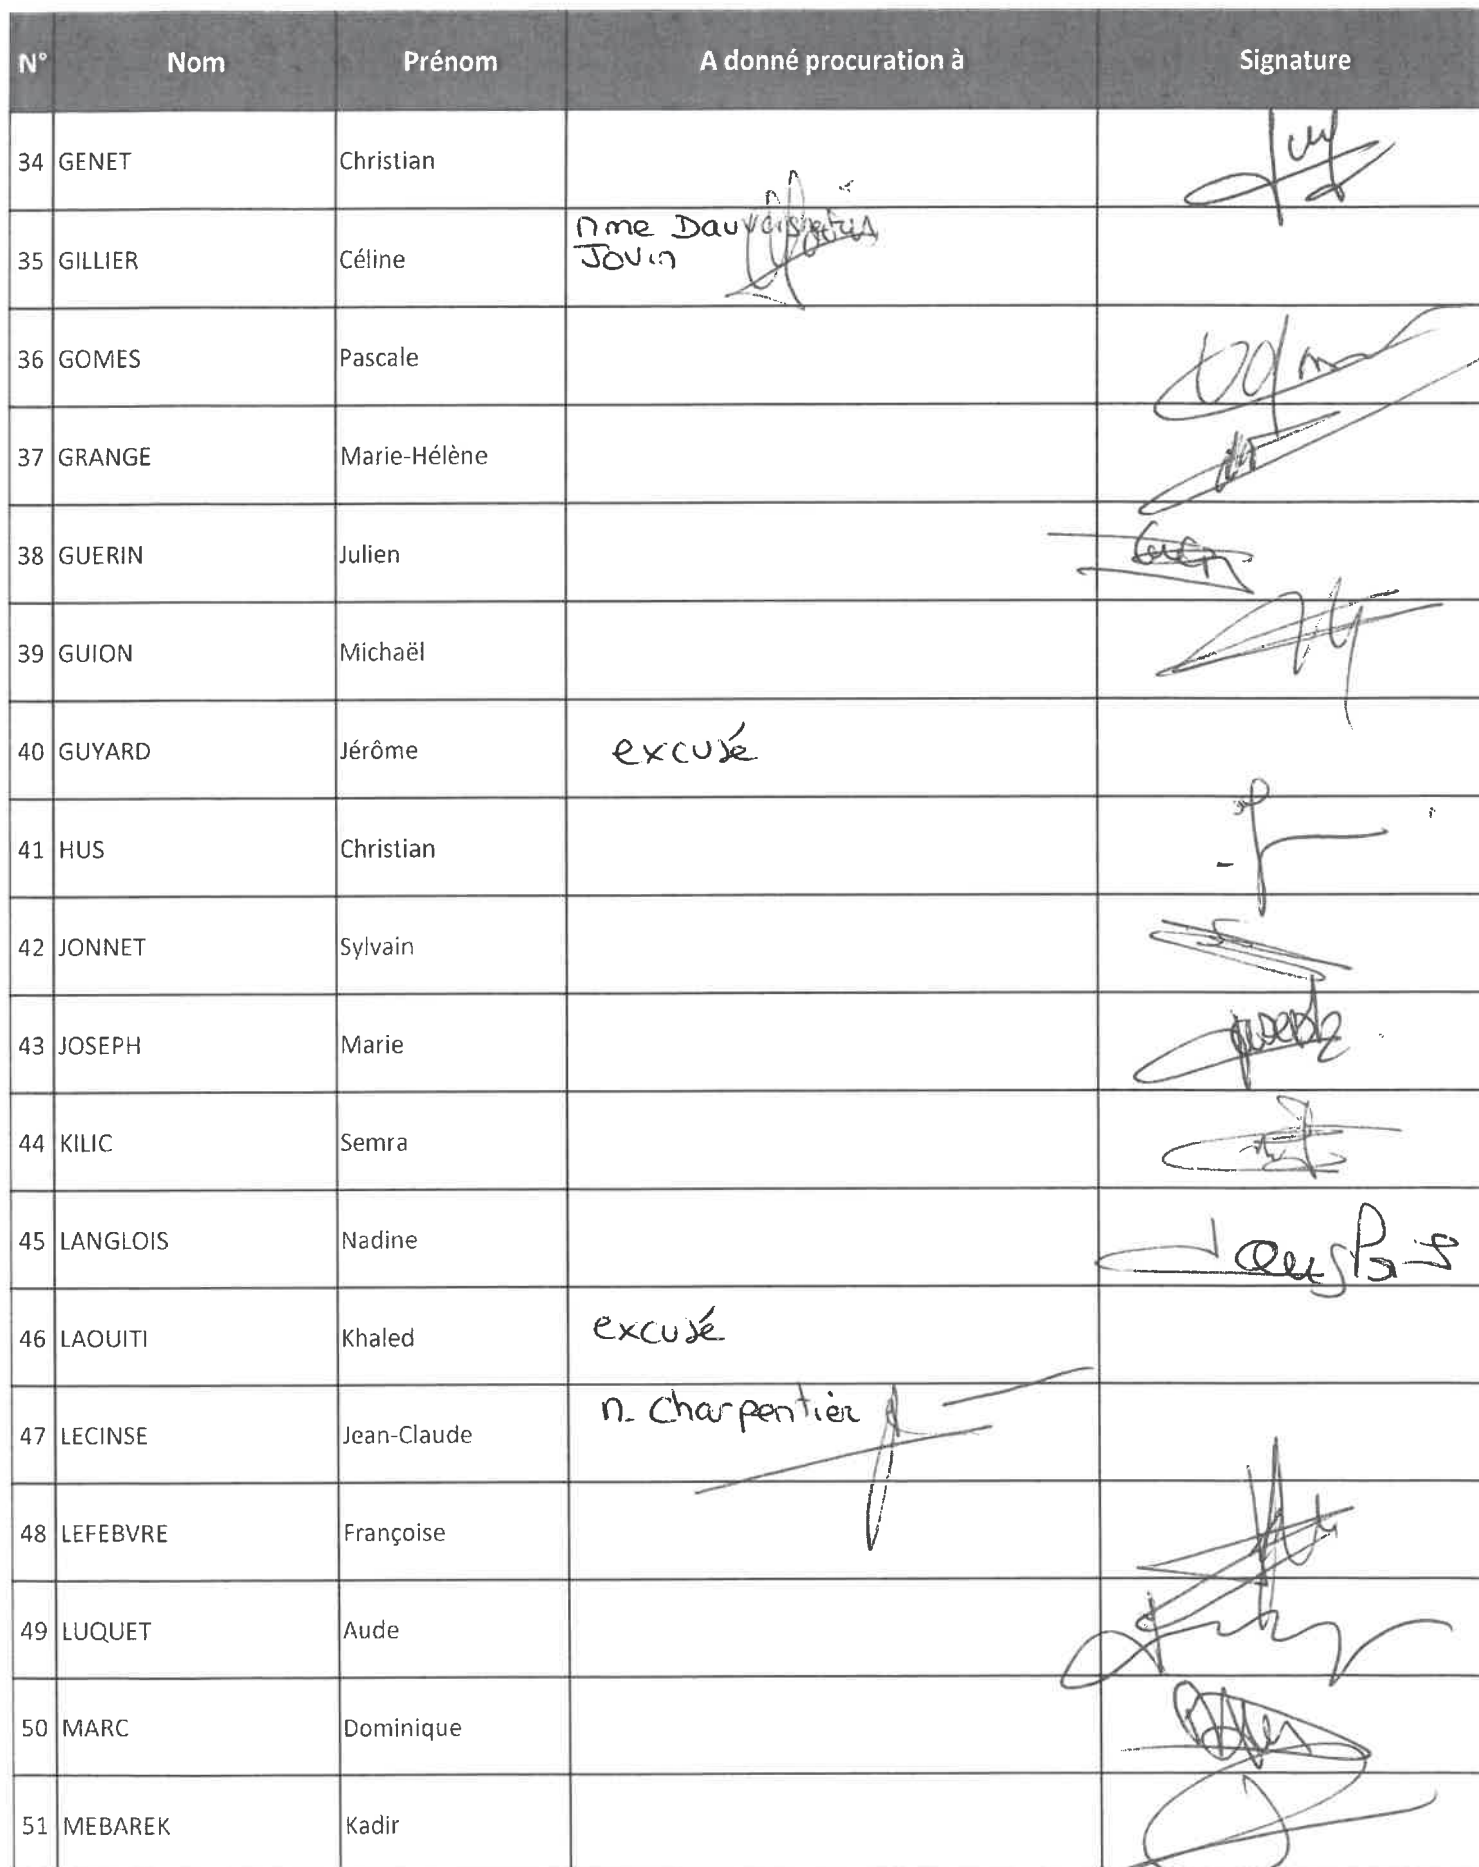 N° Nom Prénom A donné procuration à Signature
34 GENET Christian
35 GILLIER Céline Mme Dauvergne
Jovin
36 GOMES Pascale
37 GRANGE Marie-Hélène
38 GUERIN Julien
39 GUION Michaël
40 GUYARD Jérôme excusé
41 HUS Christian
42 JONNET Sylvain
43 JOSEPH Marie
44 KILIC Semra
45 LANGLOIS Nadine
46 LAOUITI Khaled excusé
47 LECINSE Jean-Claude M. Charpentier
48 LEFEBVRE Françoise
49 LUQUET Aude
50 MARC Dominique
51 MEBAREK Kadir